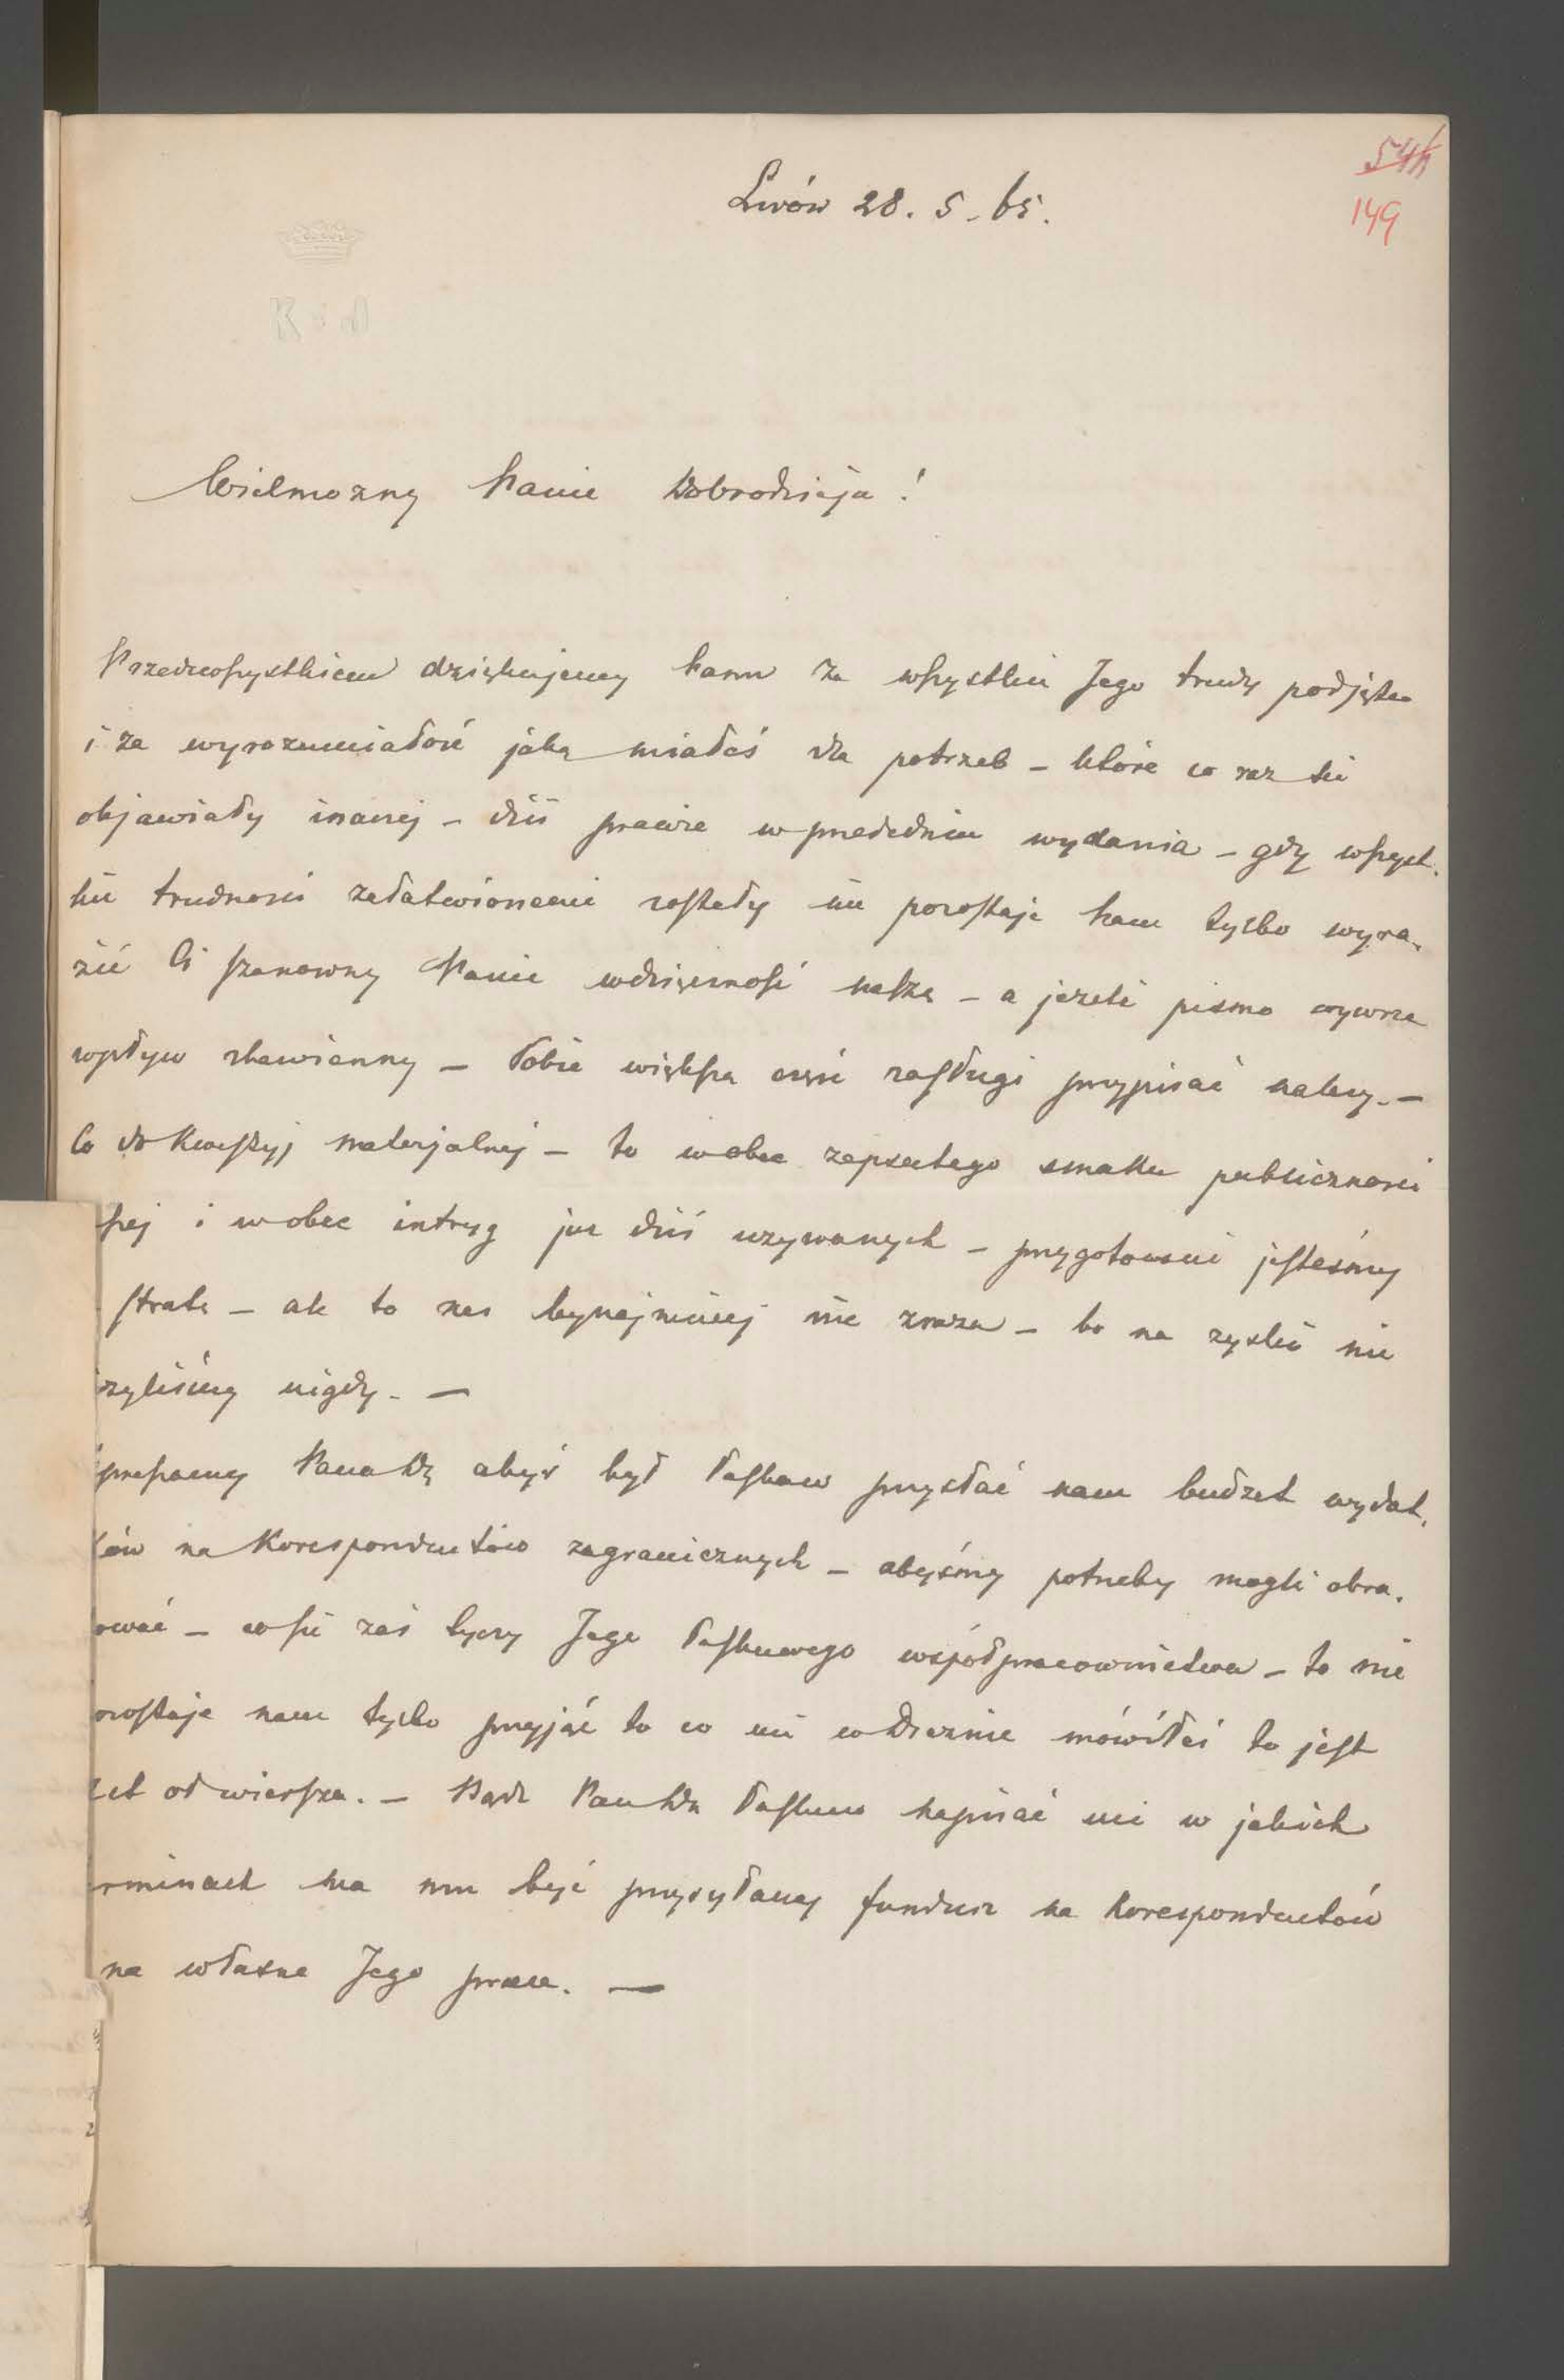 544
149
Lwów 28. 5. 65.
Wielmożny Panie Dobrodzieju!
Przedewszystkiem dziękujemy Panu za wszystkie Jego trudy podjęte
i za wyrozumiałość jaką miałeś dla potrzeb – które co raz to
objawiały inaczej – dziś prawie w przededniu wydania – gdy wszyst-
kie trudności załatwionemi zostały nie pozostaje nam tylko wyra-
zić Ci szanowny Panie wdzięczność naszą – a jeżeli pismo wywrze
wpływ zbawienny – Tobie większą część zasługi przypisać należy. –
Co do kwestyj materjalnej – to wobec zepsutego smaku publiczności
szej i wobec intryg już dziś używanych – przygotowani jesteśmy
stratę – ale to nas bynajmniej nie zraża – bo na zyski nie
zyliśmy nigdy. –
praszamy Pana Dź abyś był łaskaw przysłać nam budżet wydat-
ków na Korespondentów zagranicznych – abyśmy potrzeby mogli obra-
ować – co się zaś tyczy Jego łaskawego współpracownictwa – to nie
zostaje nam tylko przyjąć to co mi wdzięcznie mówiłeś to jest
cet od wiersza. – Bądź Pan Dź łaskaw napisać mi w jakich
rminach ma mu być przysyłany fundusz na Korespondentów
na własne Jego prace. –